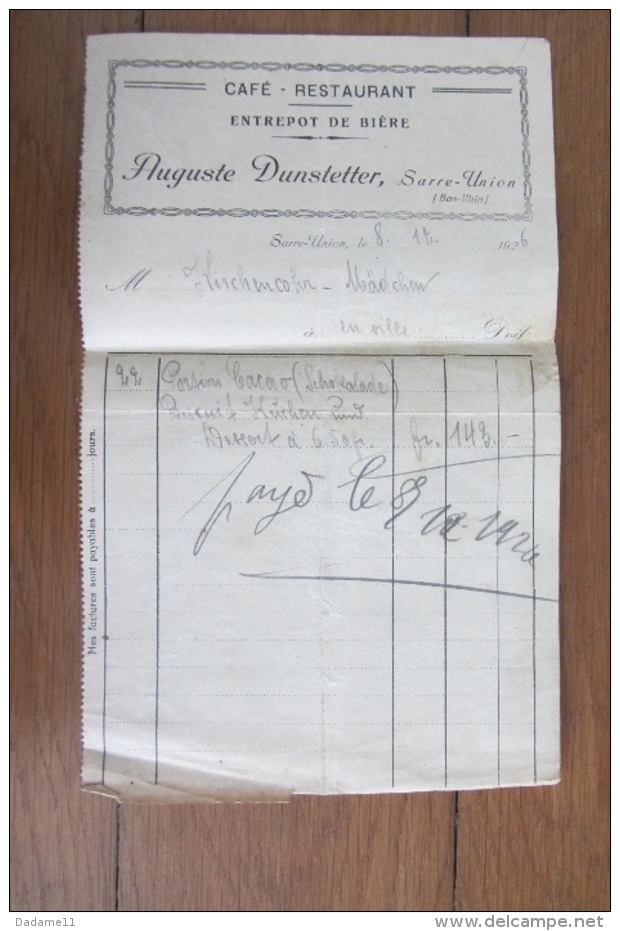 CAFÉ - RESTAURANT
ENTREPOT DE BIÈRE
Auguste Dunstetter, Sarre-Union
(Bas-Rhin)
Sarre-Union, le 8. 12. 1926
M Kirchenchor - Mädchen
à en ville Doit
22 Portion Cacao (Schokolade)
Kuchen und
Dessert à 6 50 fr. fr. 143.-
payé le 8 12-1926
Mes factures sont payables à jours.
Dadame11
www.delcampe.net